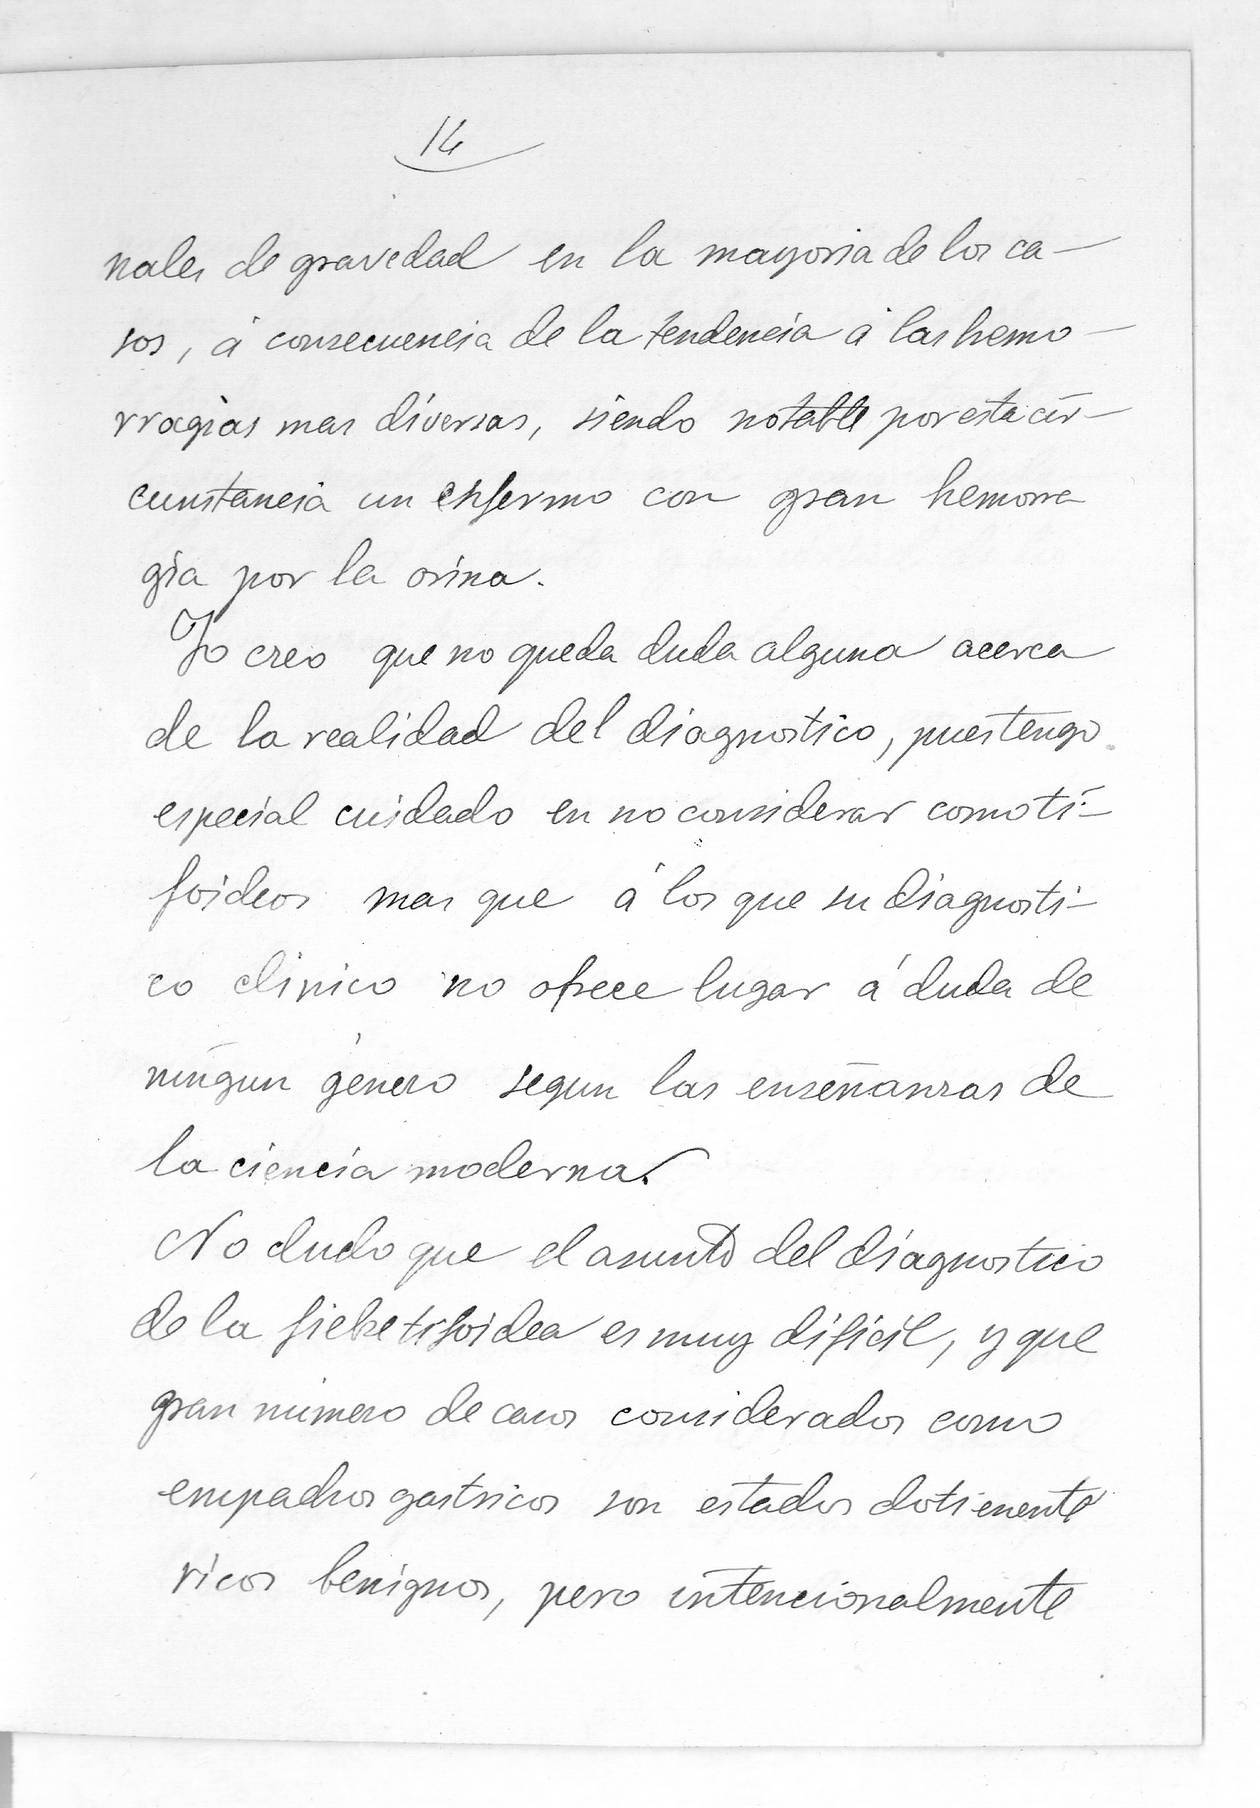 14
nales de gravedad en la mayoria de los ca-
sos, á consecuencia de la tendencia á las hemo-
rragias mas diversas, siendo notable por esta cir-
cunstancia un enfermo con gran hemorra
gia por la orina.
Yo creo que no queda duda alguna acerca
de la realidad del diagnostico, pues tengo
especial cuidado en no considerar como ti-
foideos mas que á los que su diagnosti-
co clinico no ofrece lugar á duda de
ningun género segun las enseñanzas de
la ciencia moderna.
No dudo que el asunto del diagnostico
de la fiebre tifoidea es muy dificil, y que
gran número de casos considerados como
empachos gastricos son estados dotienente
ricos benignos, pero intencionalmente